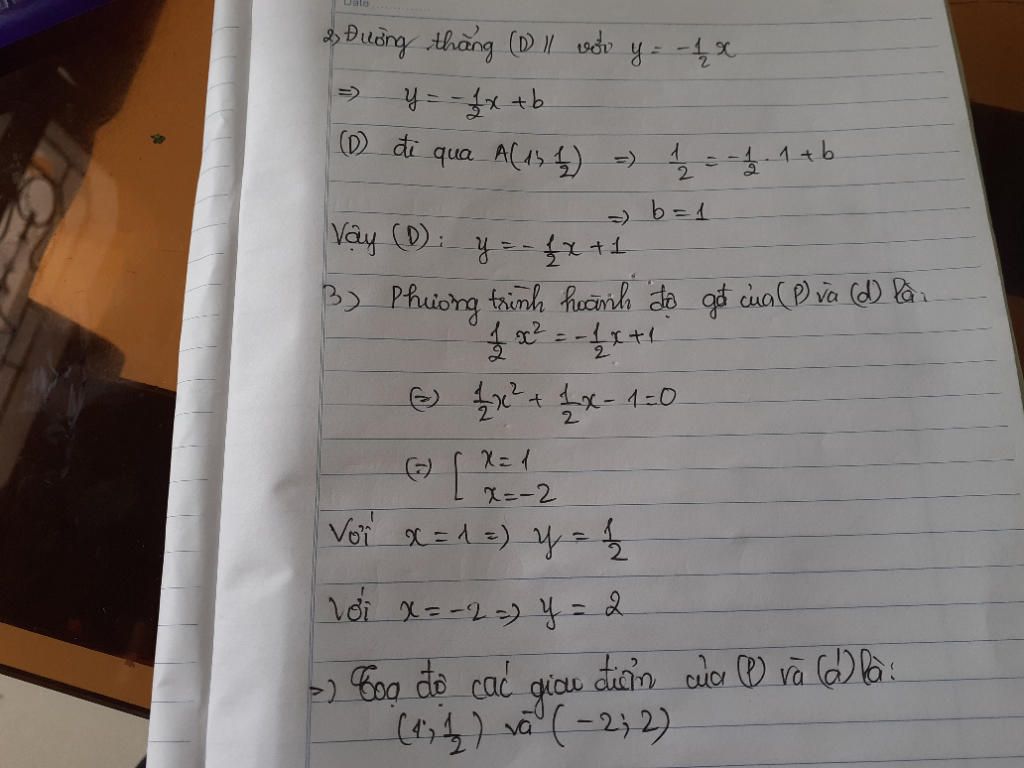 Date
2, Đường thẳng (D) // với y = -1/2 x
=> y = -1/2 x + b
(D) đi qua A(1; 1/2) => 1/2 = -1/2 . 1 + b
=> b = 1
Vậy (D): y = -1/2 x + 1
3, Phương trình hoành độ gđ của (P) và (d) là:
1/2 x² = -1/2 x + 1
(=) 1/2 x² + 1/2 x - 1 = 0
(=) [ x = 1
x = -2
Với x = 1 => y = 1/2
Với x = -2 => y = 2
=> Toạ độ các giao điểm của (P) và (d) là:
(1; 1/2) và (-2; 2)